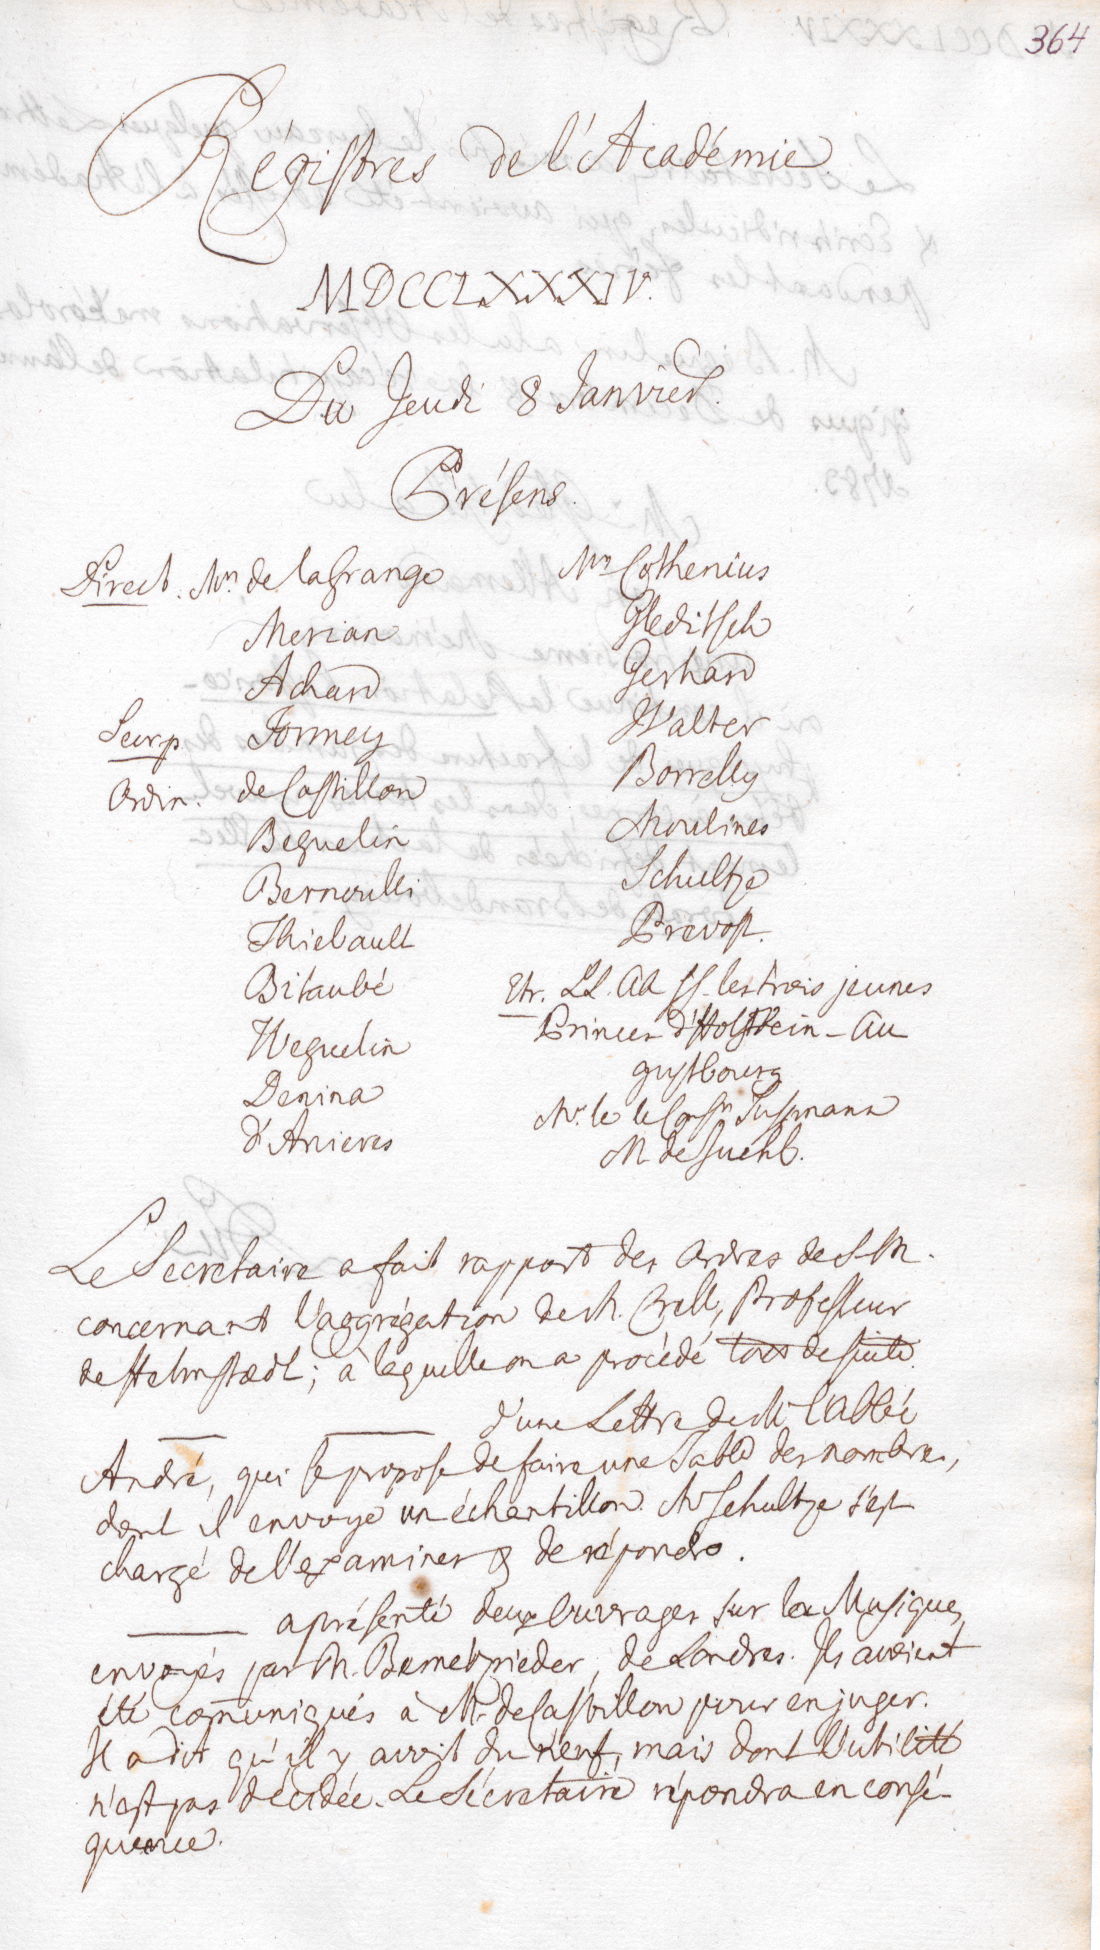 364
Régistres de l'Académie.
MDCCLXXXIV.
Du Jeudi 8 Janvier.
Présens.
Direct. Mrs. de la Grange
Merian
Achard
Formey
Ordin. de Castillon
Beguelin
Bernoulli
Thiebault
Bitaubé
Weguelin
Denina
d'Anieres
Mrs Cothenius
Gleditsch
Gerhard
Walter
Borrelly
Moulines
Schultze
Prevost.
Etr. LL. AA SS. les trois jeunes
Princes d'Holstein-Au
gustbourg
Mr. le le Consr. Susmann
M. de Suehb.
Le Secretaire a fait rapport des Ordres de S. M.
concernant l'aggrégation de M. Crell, Professeur
de Helmstaedt; à laquelle on a procédé tout de suite.
d'une Lettre de Mr l'Abbé
André, qui se propose de faire une Table des nombres,
dont il envoye un échantillon. Mr Schultze s'est
chargé de l'examiner & de répondre.
a présenté deux Ouvrages sur la Musique,
envoyés par M. Bemetzrieder, de Londres. Ils avoient
été comuniqués à M. de Castillon pour en juger.
Il a dit qu'il y avoit du neuf, mais dont l'utilité
n'est pas décidée. Le Sécretairé répondra en consé-
quence.